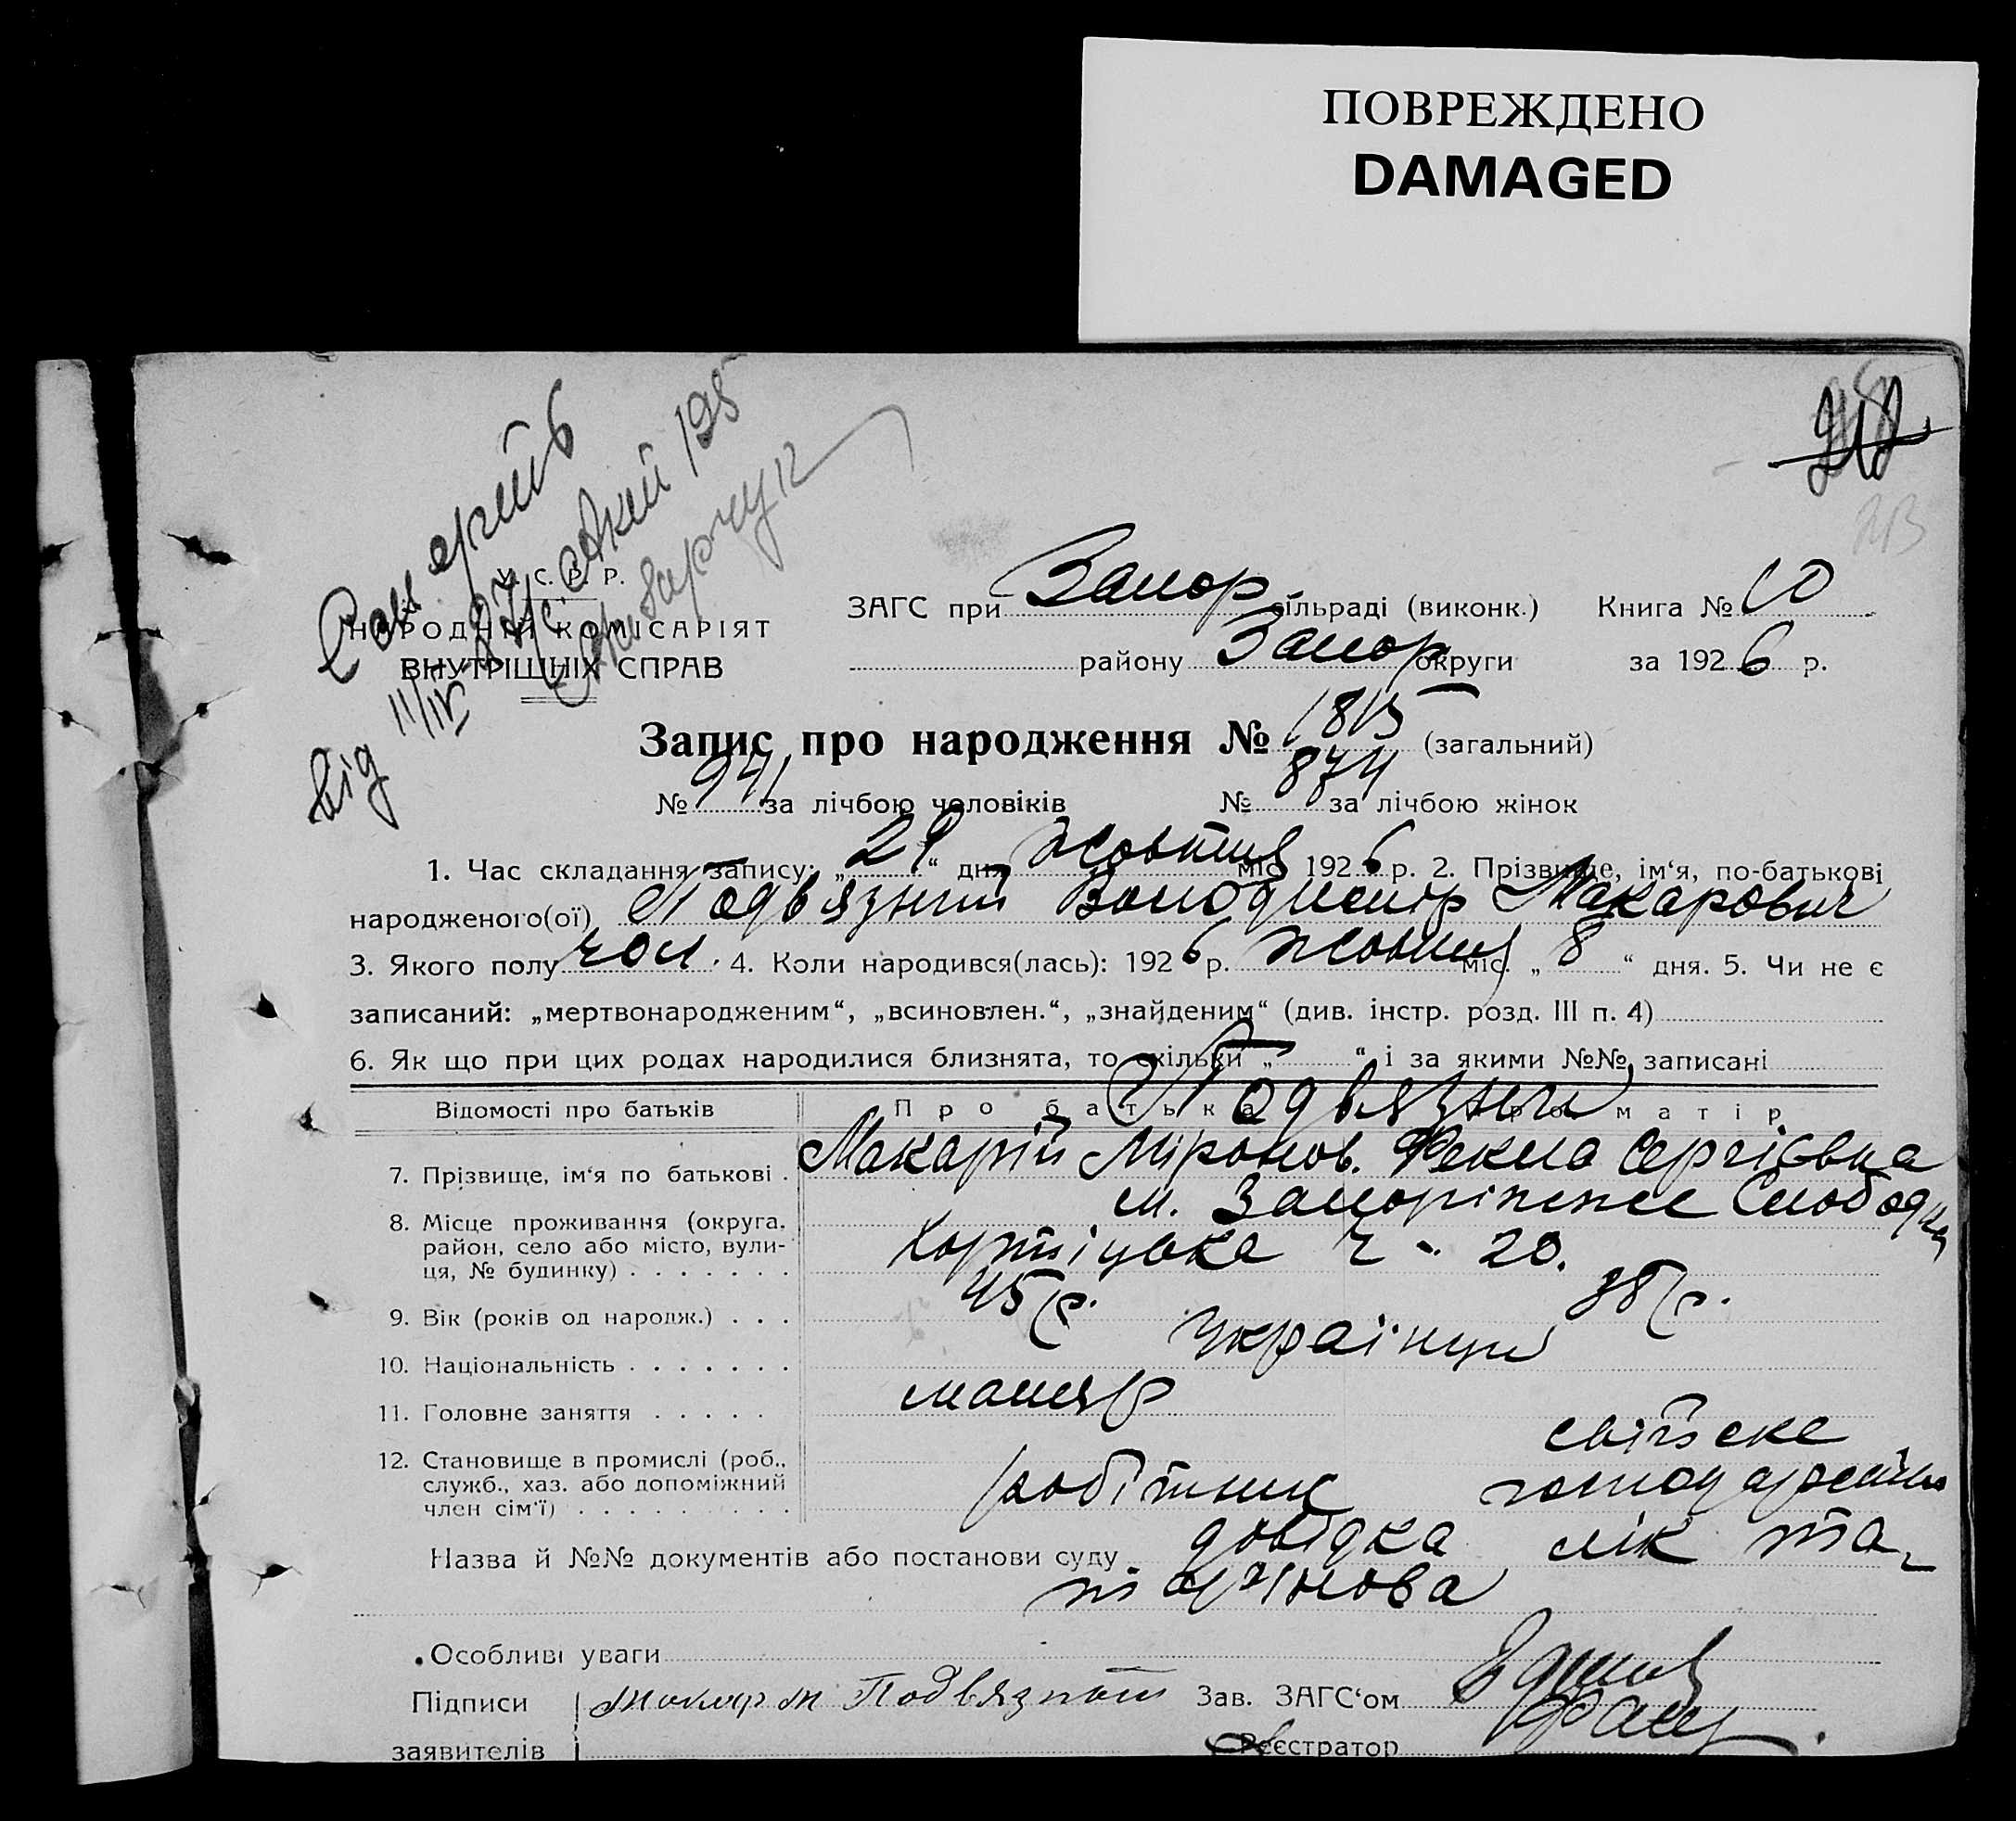 ПОВРЕЖДЕНО
DAMAGED
У. С. Р. Р.
НАРОДНІЙ КОМІСАРІЯТ
ВНУТРІШНІХ СПРАВ
від 11/IV
ЗАГС при Запор сільраді (виконк.) Книга № 10
району Запор округи за 1926 р.
Запис про народження № 1815 (загальний)
№ 941 за лічбою чоловіків № 874 за лічбою жінок
1. Час складання запису: „29“ дня жовтня міс. 1926 р. 2. Прізвище, ім‘я, по-батькові
народженого(ої) Подвязний Володимир Макарович
3. Якого полу чол. 4. Коли народився(лась): 1926 р. жовтня міс. „8“ дня. 5. Чи не є
записаний: „мертвонародженим“, „всиновлен.“, „знайденим“ (див. інстр. розд. III п. 4)
6. Як що при цих родах народилися близнята, то скільки „ “ і за якими №№ записані
Відомості про батьків Про батька Про матір
Подвязни
7. Прізвище, ім‘я по батькові . Макарій Міронов. Фекла Сергієвна
8. Місце проживання (округа, район, село або місто, вулиця, № будинку) м. Запоріжже Слободка
Хортіцька ч. 20.
9. Вік (років од народж.) . . . 45 р. 38 р.
10. Національність . . . . . . . Українци
11. Головне заняття . . . . . маляр
12. Становище в промислі (роб., служб., хаз. або допоміжний член сім‘ї) робітник свійське господарство
Назва й №№ документів або постанови суду довідка лік
Особливі уваги
Підписи Подвязный Зав. ЗАГС‘ом
заявителів Реєстратор